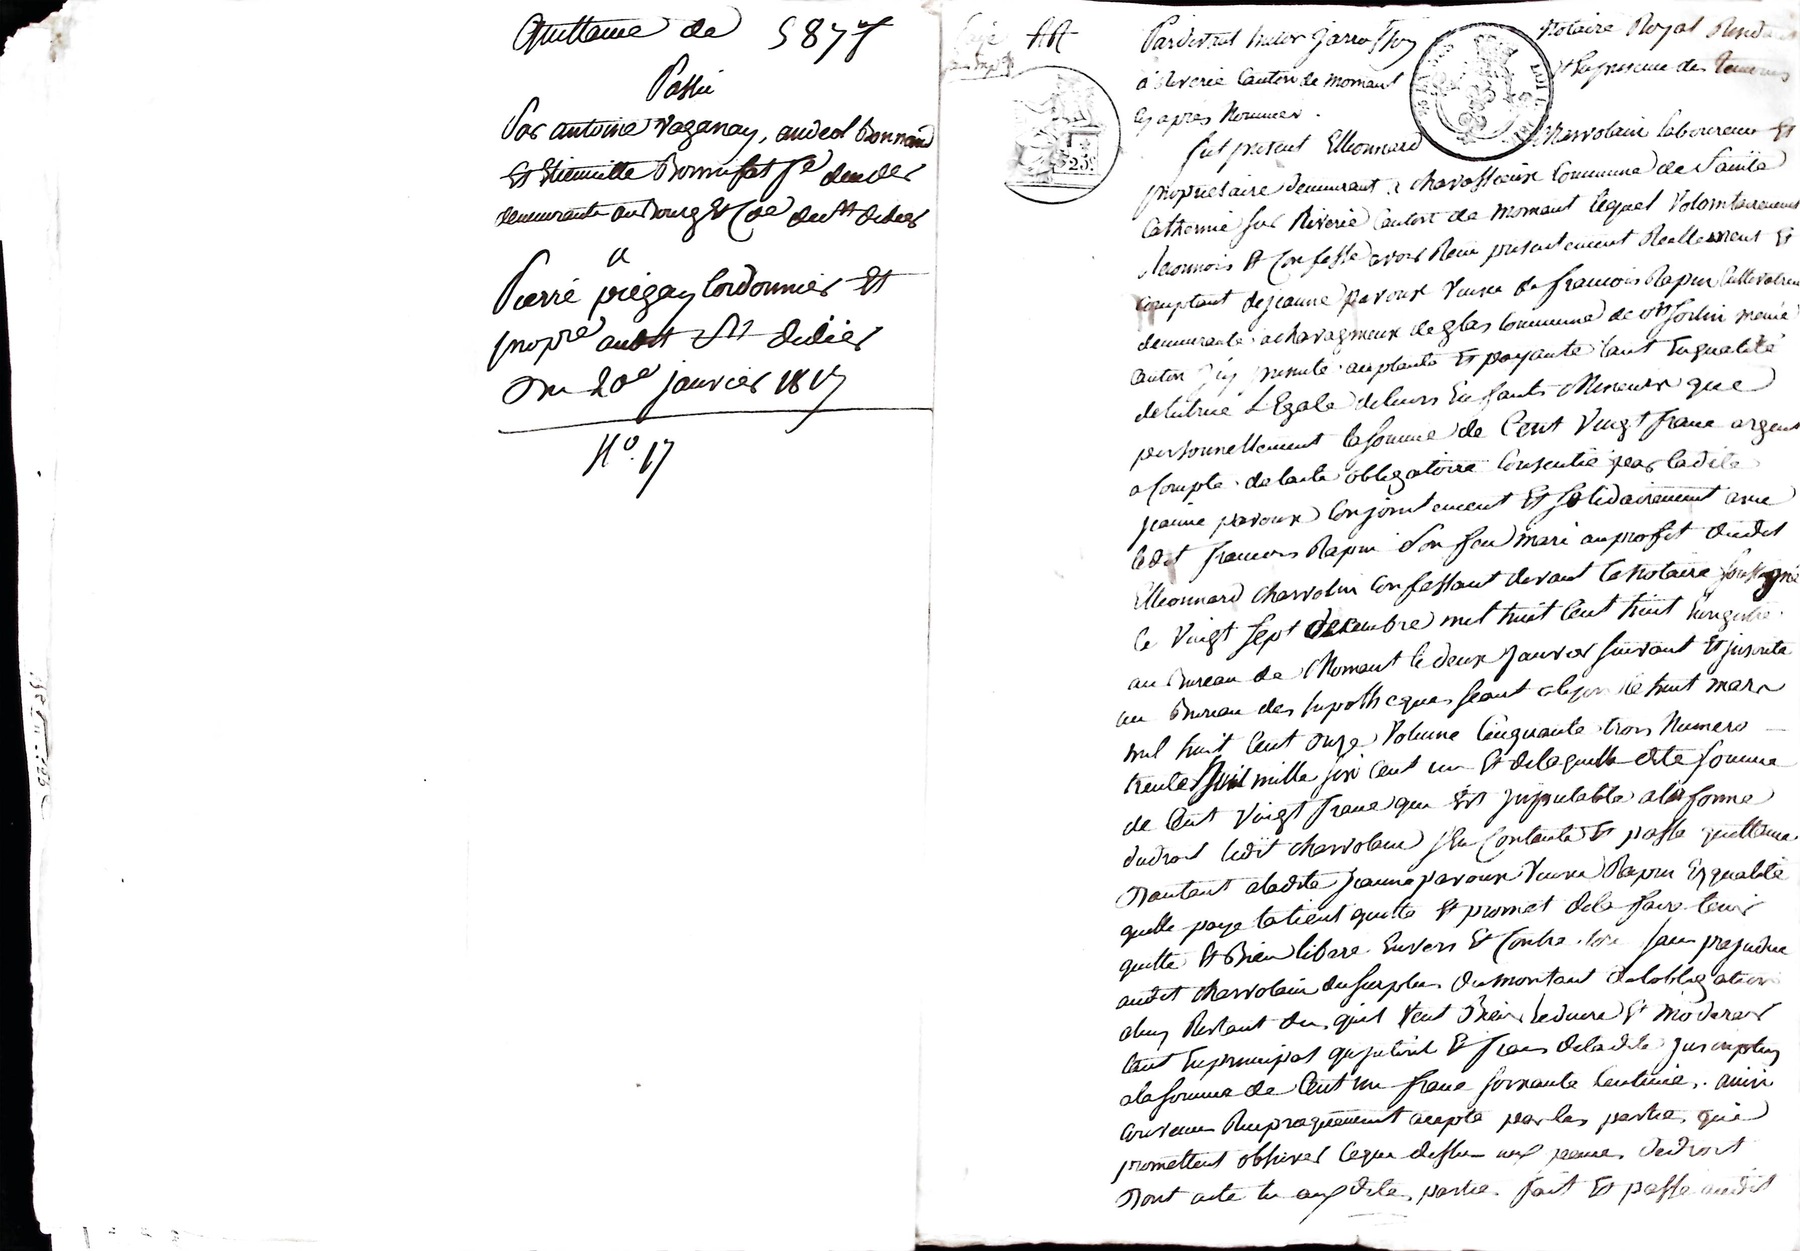 Quittance de 587 f
Passée
Par antoine vaganay, andeol Bonnard
Et Etiennette Bonnifat sa
demeurants au Bourg Et Cne de St didier
a
Pierre piegay Cordonnier Et
propre audit St didier
Du 20e janvier 1817
No. 17
Pardevant
notaire Royal
à Riverie Canton de mornant
Et En presence des temoins
Cy après Nommés.
fut present Elleonnard Charvolain laboureur Et
propriétaire demeurant à chavassieux Commune de Sainte
Catherine sur Riverie Canton de mornant lequel volontairement
Reconnois Et Confesse avoir Reçu presentement Reellement Et
comptant de jeanne pavoux veuve de francois Rapin Cultivatrice
demeurante a Commune de St sorlin même
canton presente acceptante Et payante tant En qualité
de tutrice Légale de leurs Enfants Mineurs que
personnellement la somme de Cent Vingt franc argent
a Compte de lacte obligatoire Consentie par ladite
jeanne pavoux Conjointement Et solidairement avec
ledit francois Rapin Son feu mari au profit dudit
Elleonnard charvolin Confessant devant le Notaire soussigné
le Vingt sept decembre mil huit Cent huit Enregistré
au Bureau de Mornant le deux Janvier suivant Et inscrite
au Bureau des hipotheques seant a lyon le huit mars
mil huit Cent onze Volume Cinquante trois Numero
trente huit mille six Cent un Et de laquelle dite somme
de Cent Vingt franc qui Est imputable a la forme
du droit ledit charvolain sen Contente Et passe quittance
Dautant a ladite Jeanne pavoux Veuve Rapin En qualité
quelle paye la tient quitte Et promet de la faire tenir
quitte Et Bien libere Envers Et Contre tous sans prejudice
audit charvolain du surplus du montant de lobligation
a luy Restant du, quil Veut Bien Reduire Et moderer
tant En principal quinteret Et frais de ladite inscription
a la somme de Cent un franc soixante Centime, ainsi
convenu Reciproquement accepté par les partie, qui
promettent observer Ceque dessus aux peines de droit
Dont acte lu aux dite partie. fait Et passé audit